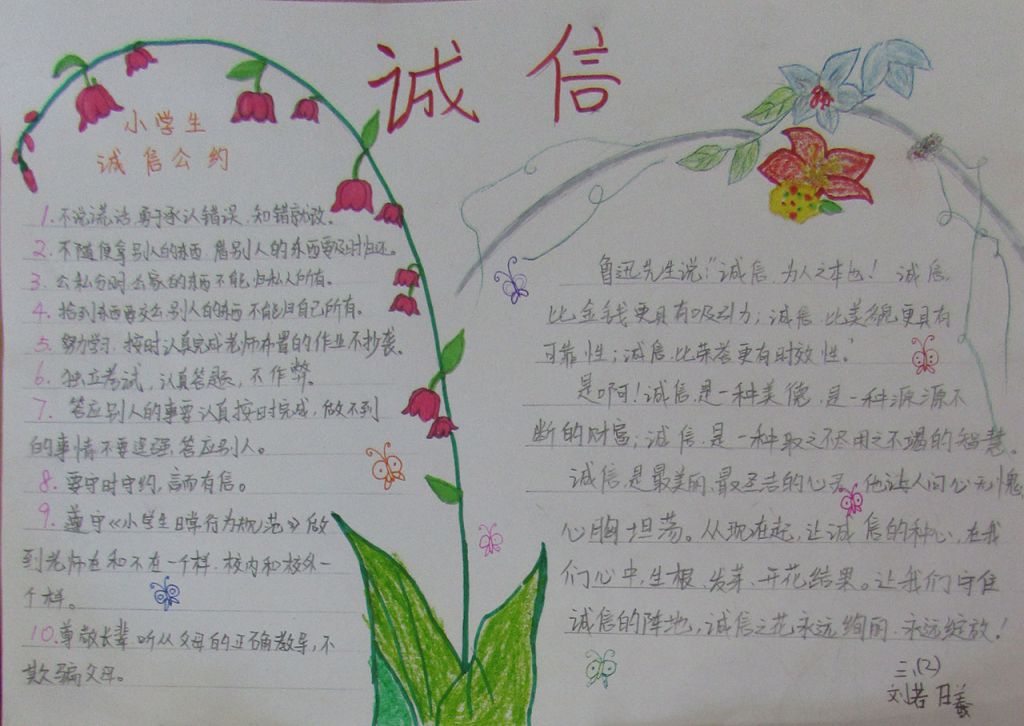 诚信
小学生
诚信公约
1.不说谎话,勇于承认错误,知错就改。
2.不随便拿别人的东西,借别人的东西要及时归还。
3.公私分明,公家的东西不能归私人所有。
4.拾到东西要交公,别人的东西不能归自己所有。
5.努力学习,按时认真完成老师布置的作业不抄袭。
6.独立考试,认真答题,不作弊。
7.答应别人的事要认真按时完成,做不到
的事情不要逞强答应别人。
8.要守时守约,言而有信。
9.遵守《小学生日常行为规范》做
到老师在和不在一个样,校内和校外一
个样。
10.尊敬长辈,听从父母的正确教导,不
欺骗父母。
鲁迅先生说:“诚信为人之本也!诚信,
比金钱更具有吸引力;诚信,比美貌更具有
可靠性;诚信比荣誉更有时效性。”
是啊!诚信是一种美德,是一种源源不
断的财富;诚信是一种取之不尽用之不竭的智慧。
诚信是最美丽、最圣洁的心灵,他让人问心无愧,
心胸坦荡。从现在起,让诚信的种心,在我
们心中,生根、发芽、开花结果。让我们守住
诚信的阵地,诚信之花永远绚丽,永远绽放!
三、(2)
刘若曦